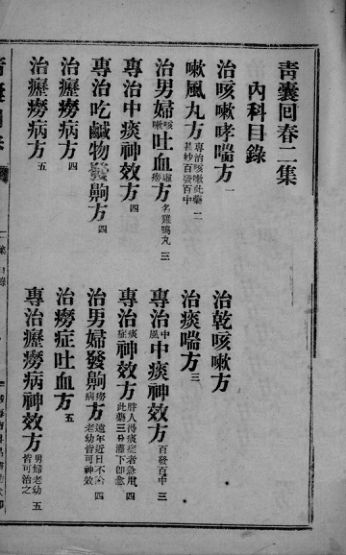 青囊回春二集
內科目錄
治咳嗽哮喘方 一
治乾咳嗽方
嗽風丸方 專治咳嗽此藥 百發百中 二
治痰喘方 三
治男婦咳嗽吐血方 名雞鴨丸 三
專治中風中痰神效方 百發百中 三
專治中痰神效方 四
專治痰症神效方 胖人得痰症者急用 此藥三分灌下即愈 四
專治吃鹹物發齁方 四
治男婦發齁癆病方 遠年近日不論 老幼皆可神效 四
治癧癆病方 四
治癆症吐血方 五
治癧癆病方 五
專治癧癆病神效方 男婦老幼 皆可治之 五